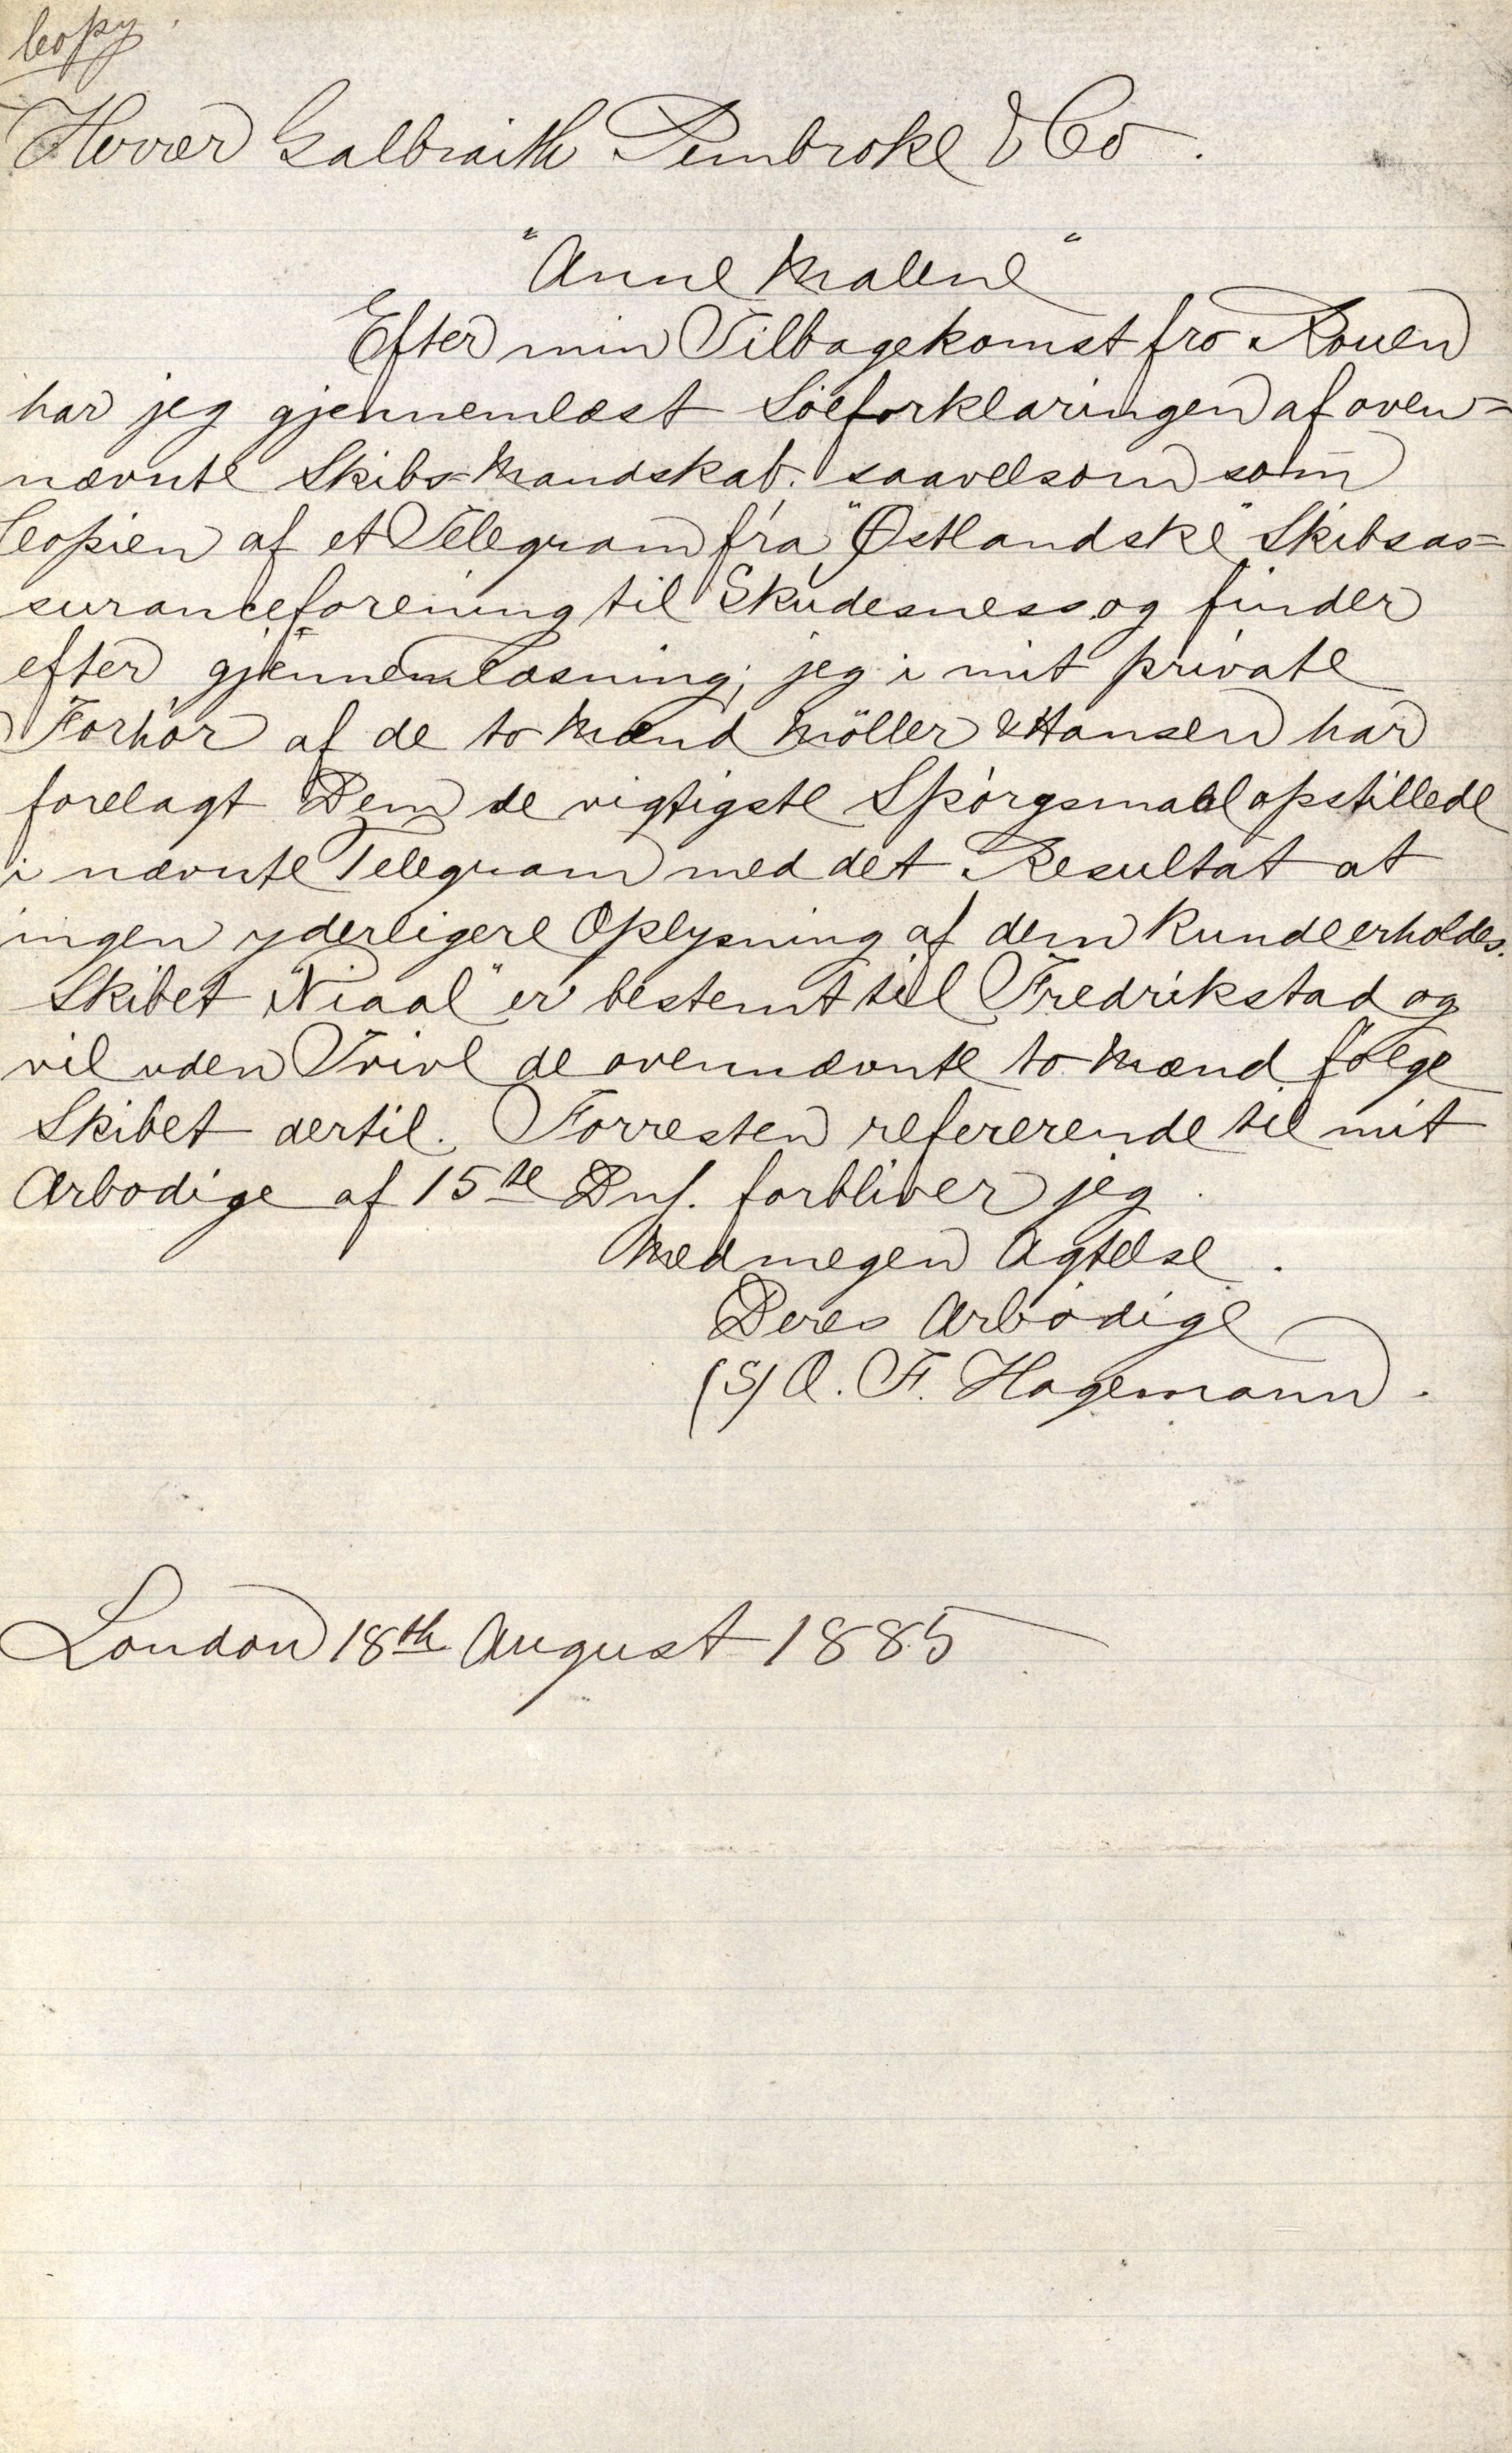 Copy.
Herrer Galbraith Pembroke & Co.
"Anne Malene"
Efter min Tilbagekomst fra Rouen
har jeg gjennemlæst Söeforklaringen af oven=
nævnte Skibs=Mandskab. saavelsom som
Copien af et Telegram fra "Østlandske" Skibsas=
suranceforening til Skudesness og finder
efter gjennemlæsning, jeg i mit private
Forhör af de to Mænd Möller & Hansen har
forelagt Dem de vigtigste Spörgsmaal opstillede
i nævnte Telegram med det Resultat at
ingen yderligere Oplysning af dem kunde erholdes.
Skibet "Niaal" er bestemt til Fredrikstad og
vil uden Tvivl de ovennævnte to Mænd fölge
Skibet dertil. Forresten refererende til mit
Ærbodige af 15te Ds. forbliver jeg.
Med megen Agtelse.
Deres Ærbödige
(S) O. F. Hagemann.
London 18th August 1885